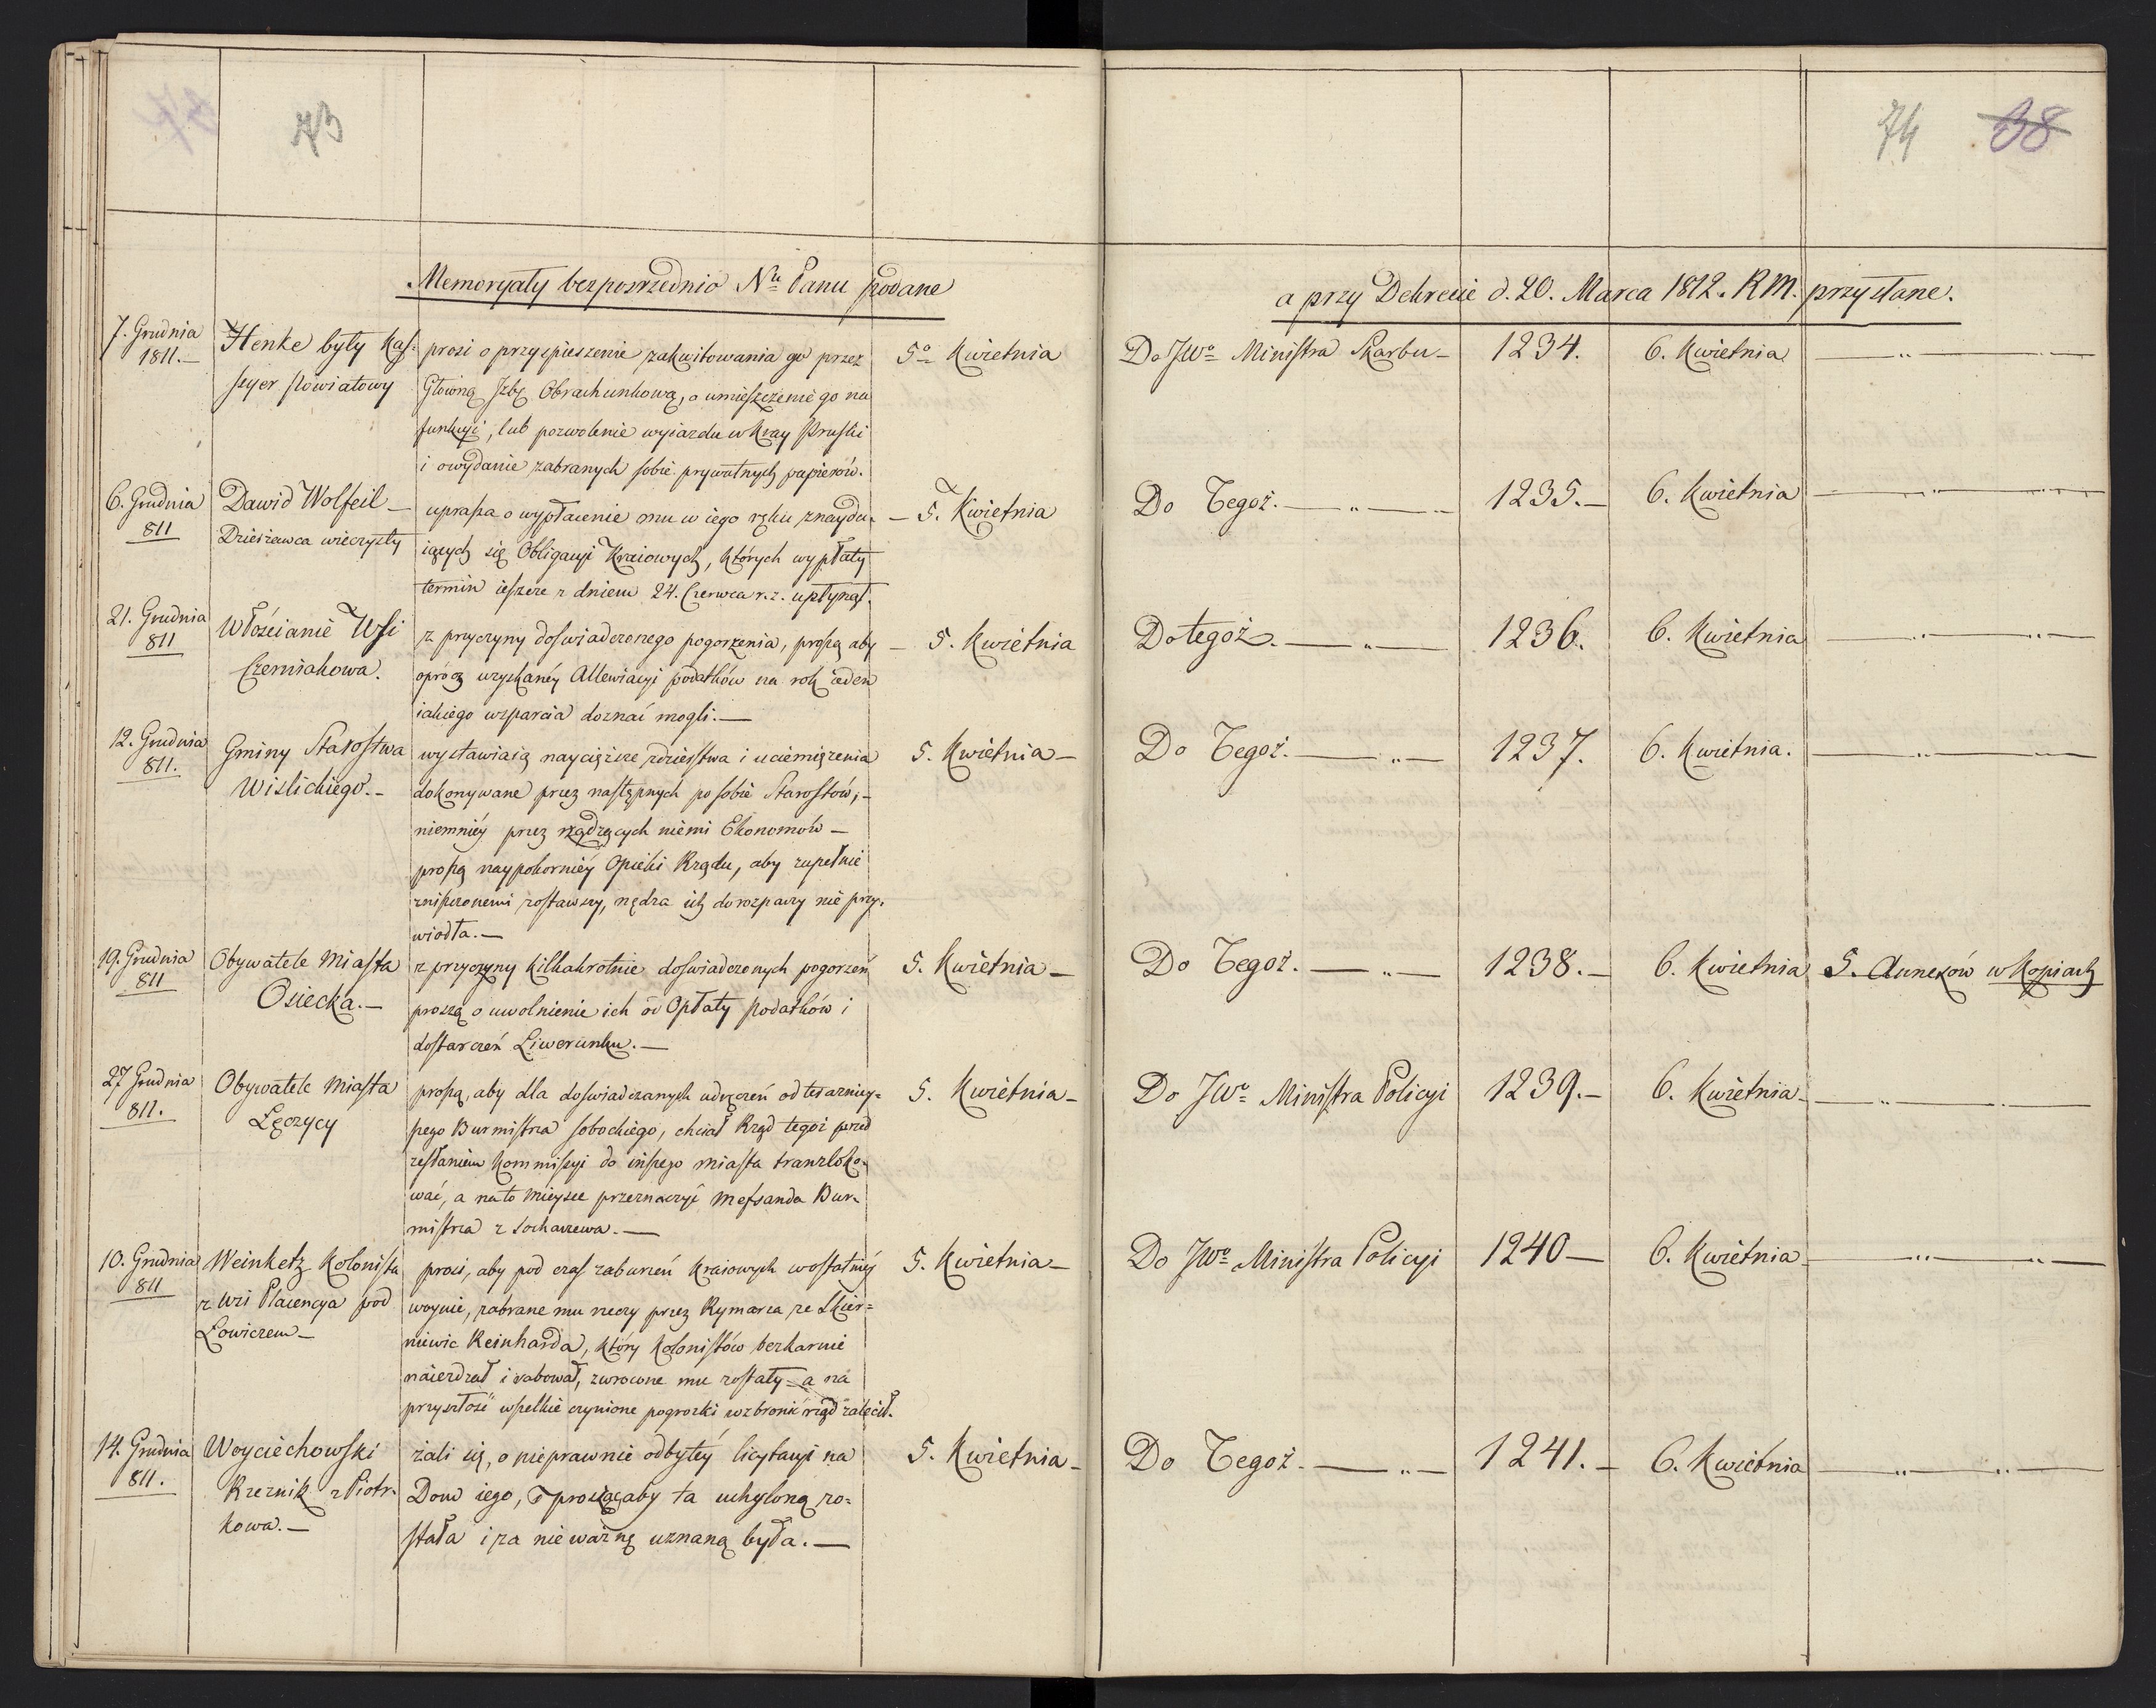 73
74 38
Memoryały bezpośrzednio Nu Panu podane
a przy Dekrecie d. 20. Marca 1812. R M. przysłane.
7. Grudnia
1811.—
Henke były Kas=
syer Powiatowy
prosi o przyspieszenie zakwitowania go przez
Głowną Jzbę Obrachunkową, o umieszczenie go na
funkcyi, lub pozwolenie wyiazdu w Kray Pruski
i o wydanie zabranych sobie prywatnych papierów.
5o Kwietnia
Do JWo Ministra Skarbu—
1234.
6. Kwietnia
6. Grudnia
811
Dawid Wolfeil—
Dzierżawca wieczysty
uprasza o wypłacenie mu w iego ręku znaydu=
iących się Obligacyi Kraiowych, których wypłaty
termin ieszcze z dniem 24. Czerwca r. z. upłynął.
— 5. Kwietnia
Do Tegoż.— „ —
1235.—
6. Kwietnia
21. Grudnia
811
Włościanie Wsi
Czerniakowa.
z przyczyny doświadczonego pogorzenia, proszą aby
oprócz uzyskanéy Allewiacyi podatków na rok ieden
iakiego wsparcia doznać mogli.—
— 5. Kwietnia
Do tegoż.— „ —
1236.
6. Kwietnia
12. Grudnia
811.
Gminy Starostwa
Wislickiego.—
wystawiaią naycięższe zdzierstwa i uciemiężenia
dokonywane przez następnych po sobie Starostów,—
niemniéy przez rządzących niemi Ekonomów—
proszą naypokorniéy Opieki Rządu, aby zupełnie
zniszczonemi zostawszy, nędza ich do rozpaczy nie przy=
wiodła.—
5. Kwietnia—
Do Tegoż.— „ —
1237.
6. Kwietnia.
19. Grudnia
811
Obywatele Miasta
Osiecka.—
z przyczyny kilkakrotnie doświadczonych pogorzeń
proszą o uwolnienie ich od Opłaty podatków i
dostarczeń Liwerunku.—
5. Kwietnia—
Do Tegoż.— „ —
1238.—
6. Kwietnia
5. Annexów w Kopiach
27 Grudnia
811.
Obywatele Miasta
Łęczycy
proszą, aby dla doświadczanych udręczeń od teraźniey=
szego Burmistrza Sobockiego, chciał Rząd tegoż przed
zesłaniem Kommissyi do inszego miasta tranzloko=
wać, a na to mieysce przeznaczyć Messanda Bur=
mistrza z Sochaczewa.—
5. Kwietnia—
Do JWo Ministra Policyi
1239.—
6. Kwietnia—
10. Grudnia
811
Weinketz Kolonista
z Wsi Placencya pod
Łowiczem—
prosi, aby pod czas zaburzeń Kraiowych w ostatniéy
woynie, zabrane mu rzeczy przez Rymarza ze Skier=
niewic Reinharda, który Kolonistów bezkarnie
naieżdżał i rabował, zwrócone mu zostały—a na
przyszłość wszelkie czynione pogrożki wzbronić rząd zalecił.
5. Kwietnia—
Do JWo Ministra Policyi
1240—
6. Kwietnia—
14. Grudnia
811.
Woyciechowski
Rzeznik z Piotr=
kowa.—
żali się, o nieprawnie odbytéy licytacyi na
Dom iego, prosząc aby ta uchyloną zo=
stała i za nie ważną uznaną była.—
5. Kwietnia—
Do Tegoż.— „ —
1241.—
6. Kwietnia